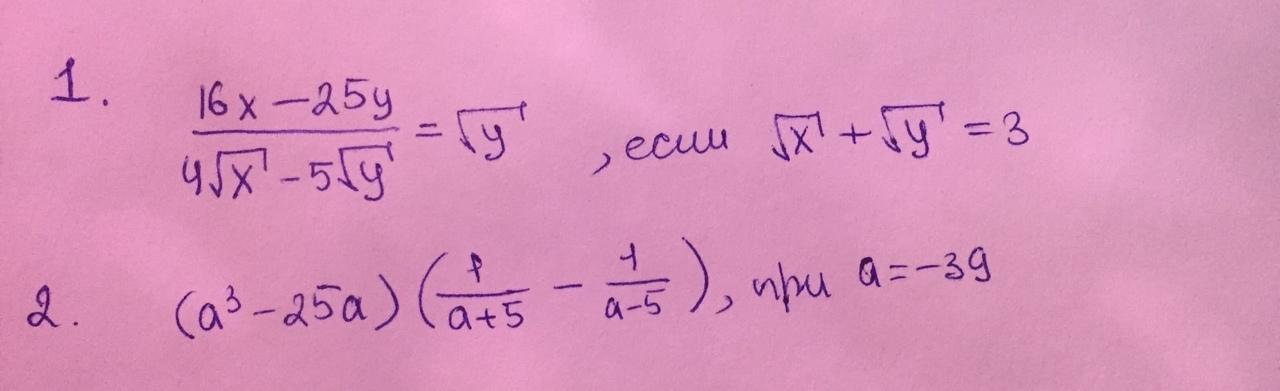 1. (16x − 25y)/(4√x − 5√y) = √y , если √x + √y = 3
2. (a³ − 25a)(1/(a+5) − 1/(a−5)), при a = −39